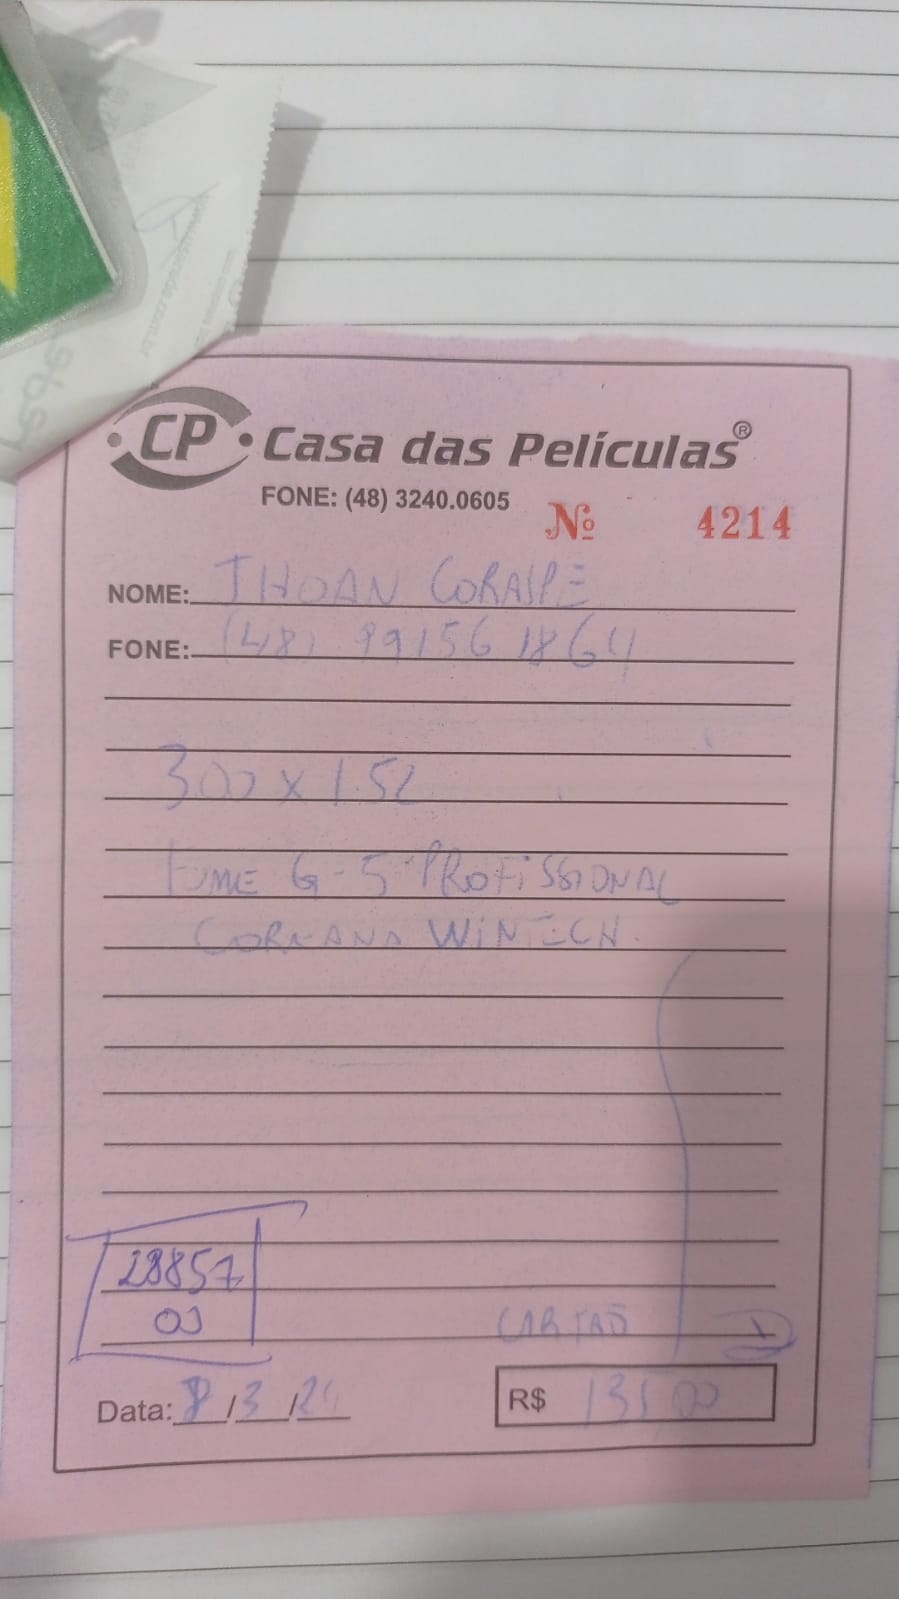 CP Casa das Películas®
FONE: (48) 3240.0605
Nº 4214
NOME: JHOAN CORASPE
FONE: (48) 99156 1864
3.00 x 1.52
FUME G-5 PROFISSIONAL
COREANA WINTECH.
28857
03
CARTÃO
Data: 8/3/24
R$ 135,00